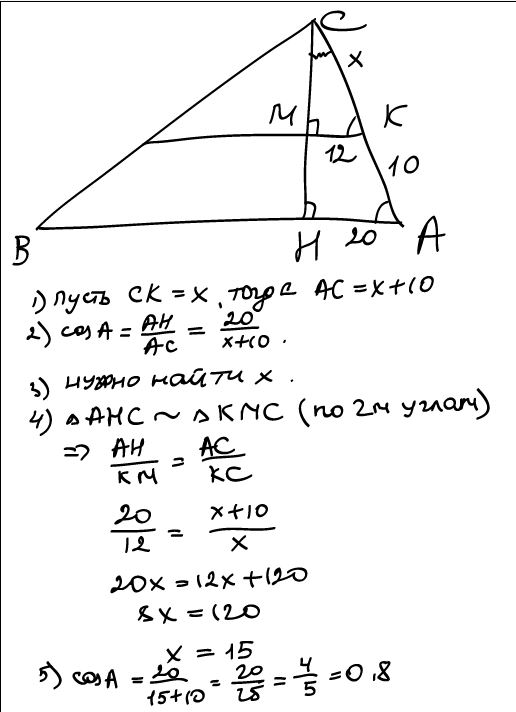 C
x
M
K
12
10
B
H
20
A
1) пусть CK = x, тогда AC = x+10
2) cosA = AH/AC = 20/x+10.
3) нужно найти x.
4) △AHC ~ △KMC (по 2м углам)
=> AH/KM = AC/KC
20/12 = x+10/x
20x = 12x+120
8x = 120
x = 15
5) cosA = 20/15+10 = 20/25 = 4/5 = 0,8